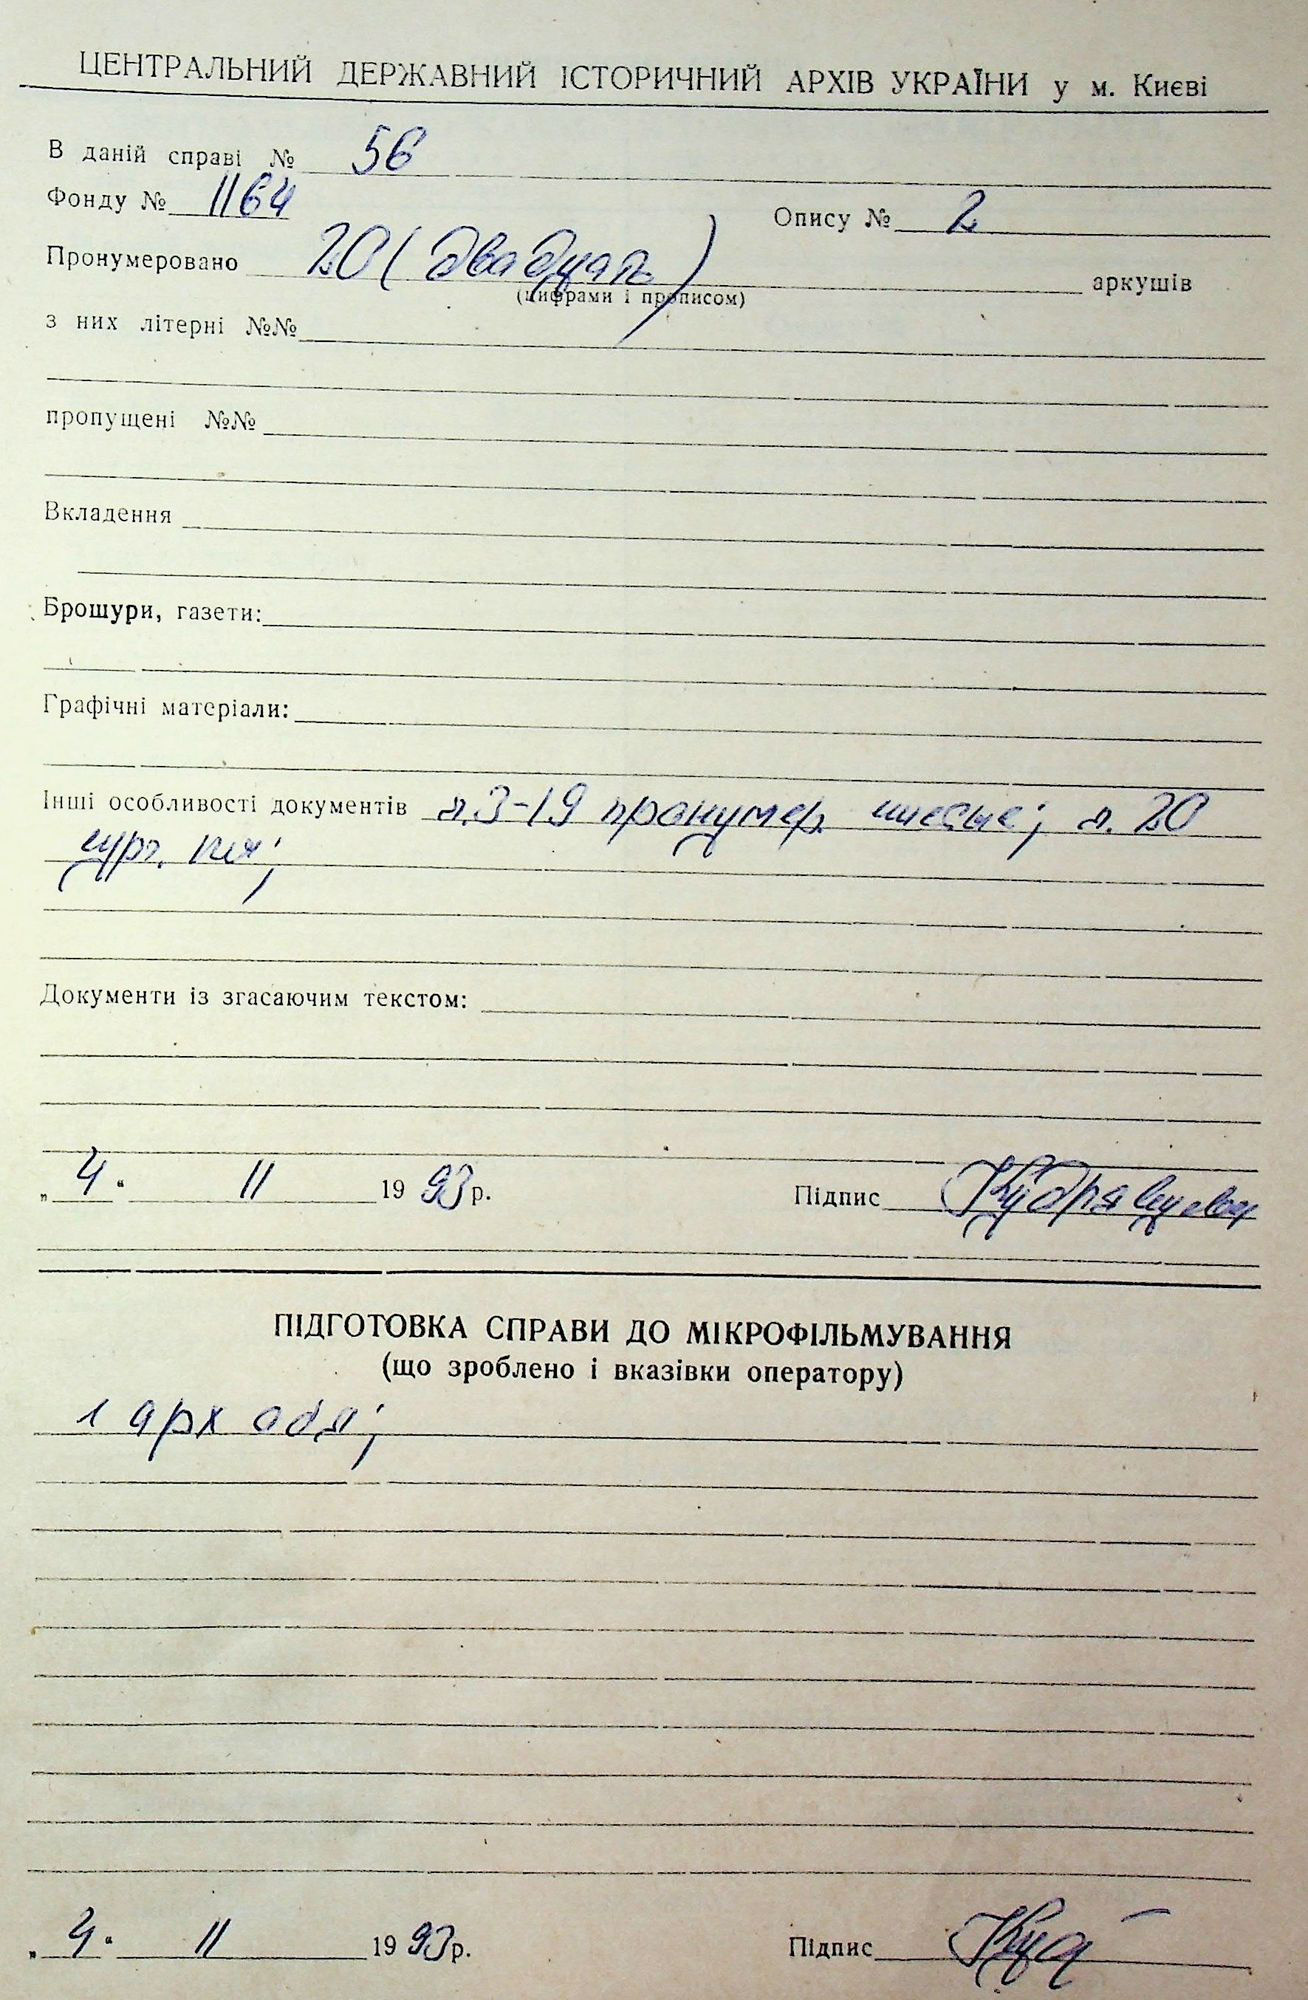 ЦЕНТРАЛЬНИЙ ДЕРЖАВНИЙ ІСТОРИЧНИЙ АРХІВ УКРАЇНИ у м. Києві
В даній справі № 56
Фонду № 1164 Опису № 2
Пронумеровано 20 (двадцать) аркушів
(цифрами і прописом)
з них літерні №№
пропущені №№
Вкладення
Брошури, газети:
Графічні матеріали:
Інші особливості документів л. 3-19 пронумер. чистые; л. 20
сург. печ;
Документи із згасаючим текстом:
„4" 11 1993 р. Підпис Кудрявцева
ПІДГОТОВКА СПРАВИ ДО МІКРОФІЛЬМУВАННЯ
(що зроблено і вказівки оператору)
1 арх обл;
„4" 11 1993 р. Підпис